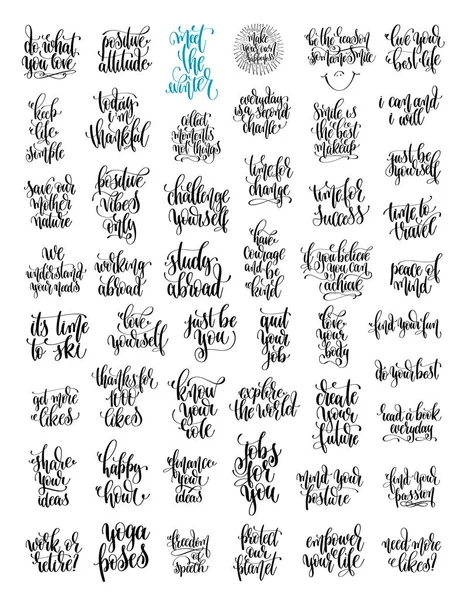 do what
you love
positive
attitude
meet
the
winter
make
your own
happiness
be the reason
someone smile
live your
best life
keep
life
simple
today
i'm
thankful
collect
moments
not things
everyday
is a second
chance
smile is
the best
makeup
i can and
i will
just be
yourself
save our
mother
nature
positive
vibes
only
challenge
yourself
time for
change
time for
success
time to
travel
we
understand
your needs
working
abroad
study
abroad
have
courage
and be
kind
if you believe
you can
achieve
peace of
mind
its time
to ski
love
yourself
just be
you
quit
your
job
love
your
body
find your fun
do your best
get more
likes
thanks for
1000
likes
know
your
role
explore
the world
create
your
future
read a book
everyday
share
your
ideas
happy
hour
finance
your
ideas
jobs
for
you
mind your
posture
find your
passion
work or
retire?
yoga
poses
freedom
of
speech
protect
our
planet
empower
your life
need more
likes?